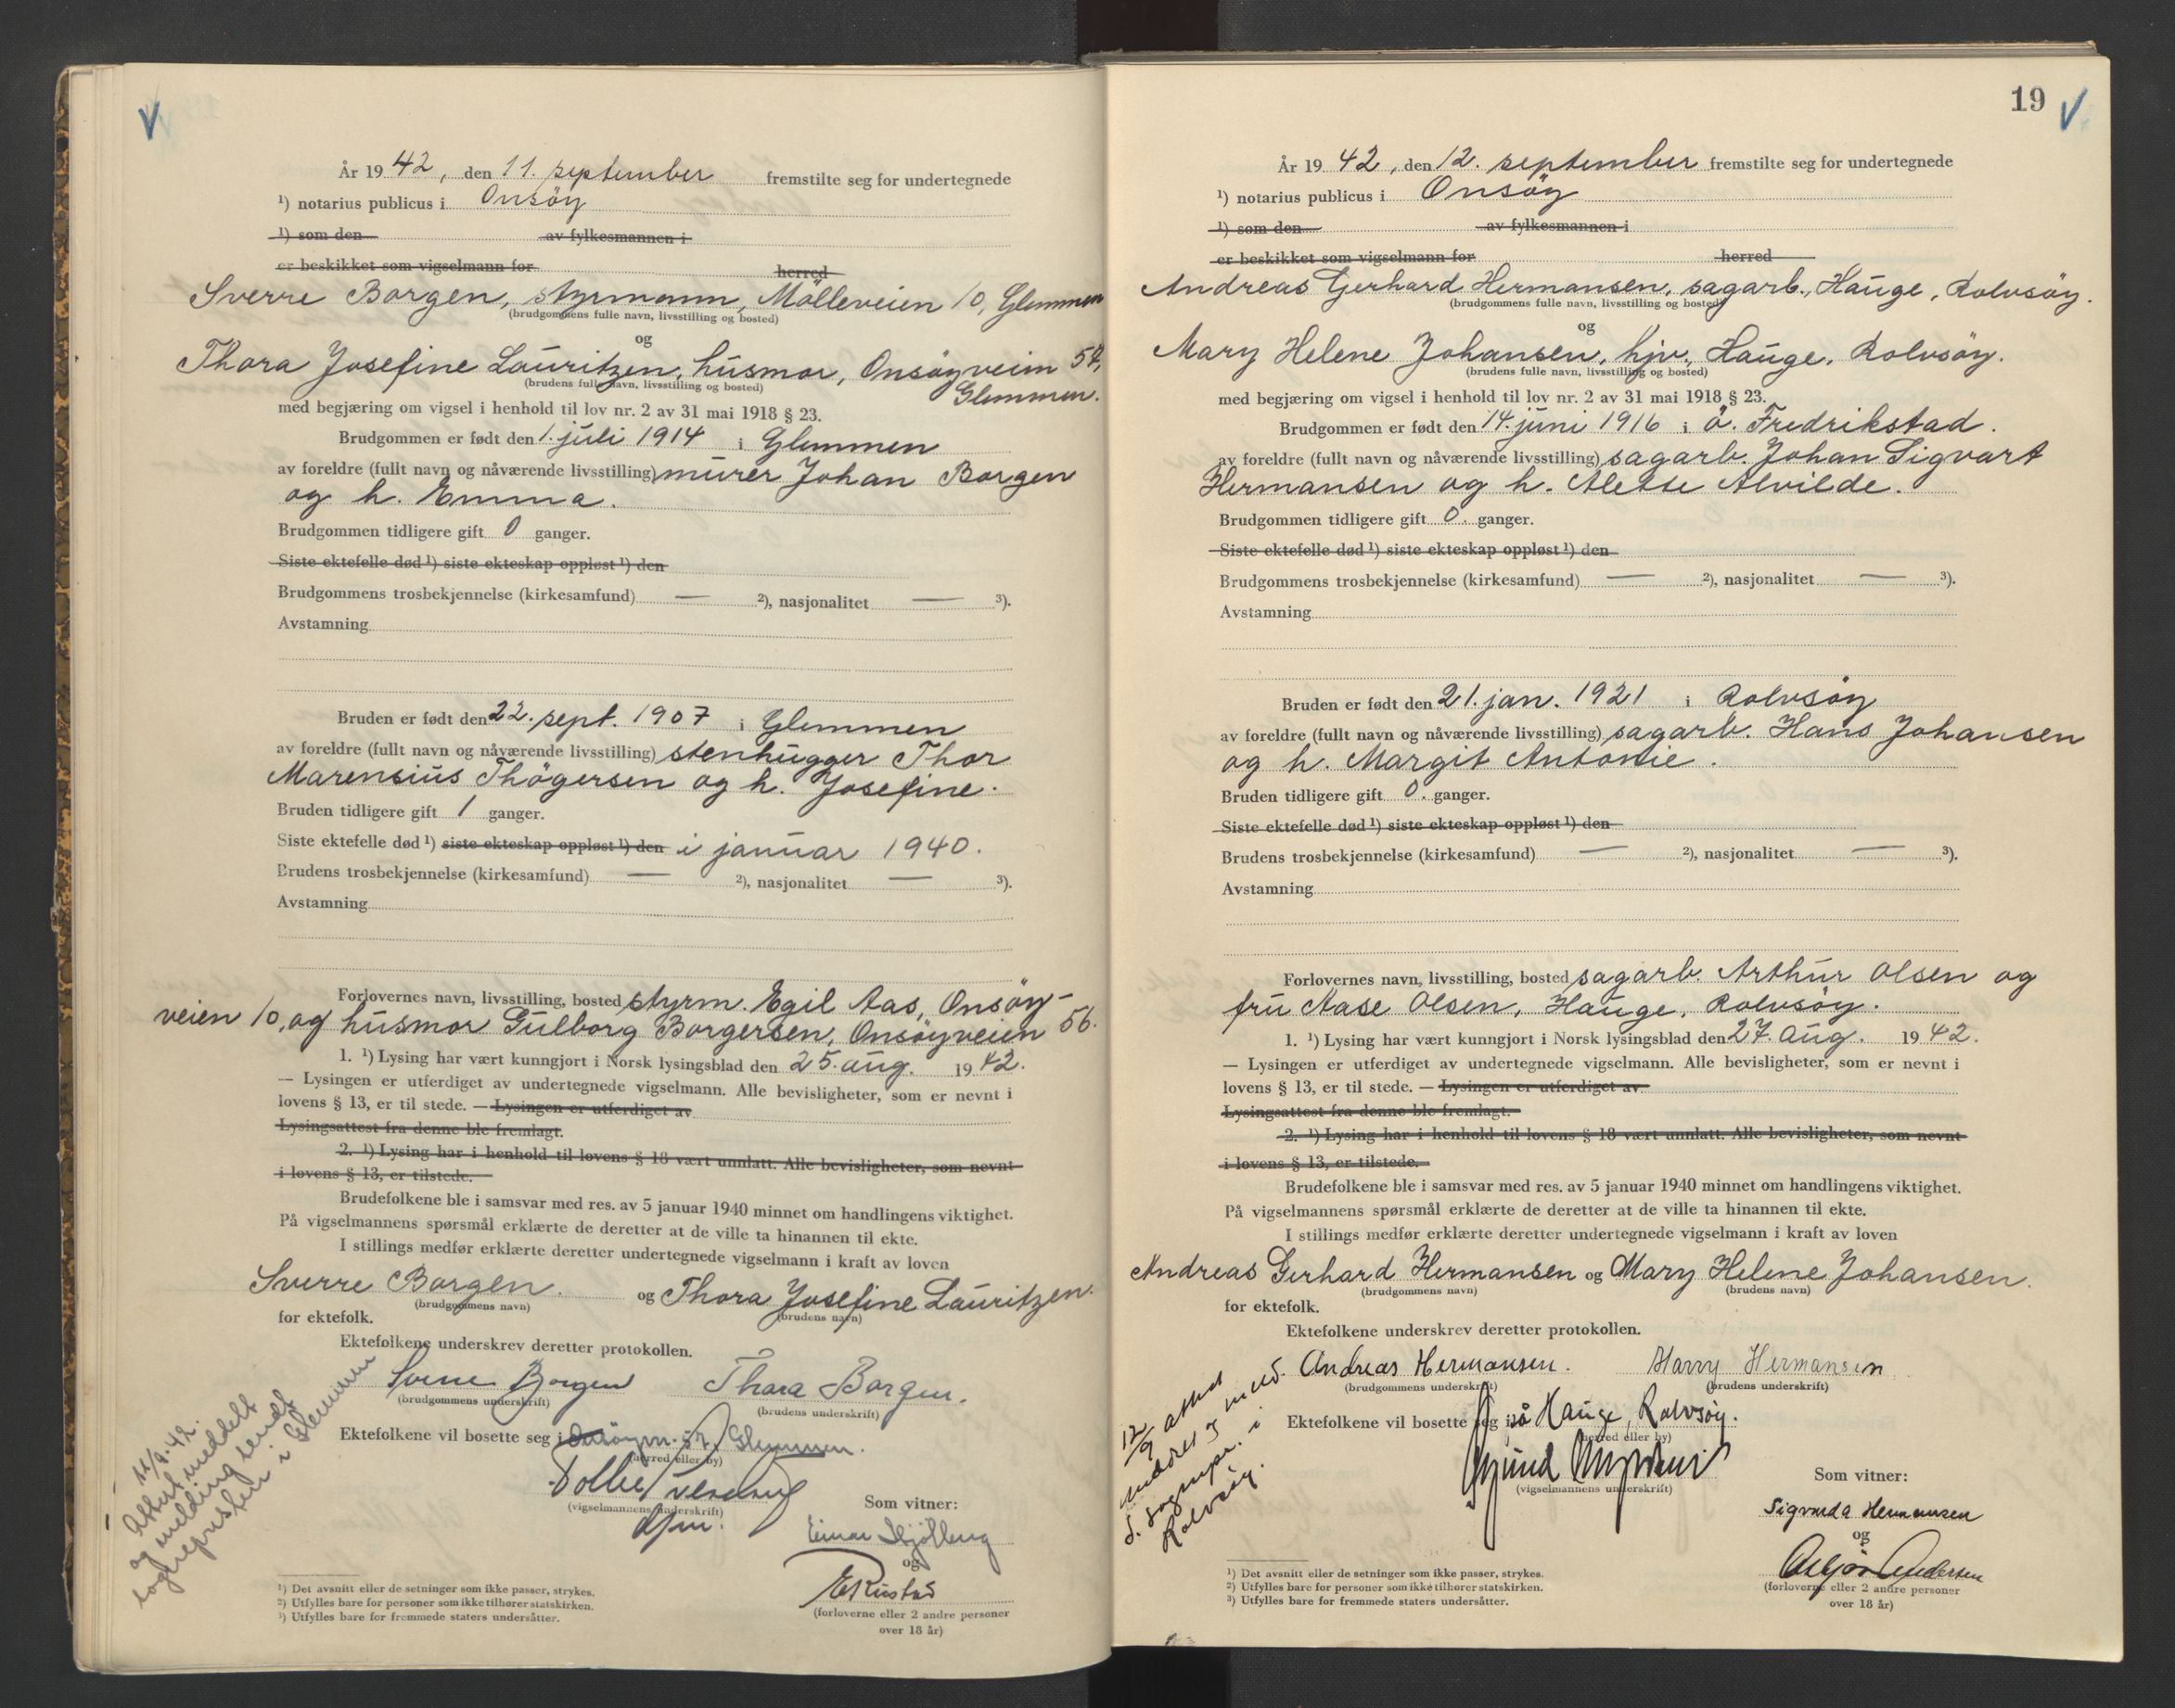 År 1942, den 11. september fremstilte seg for undertegnede
¹) notarius publicus i Onsöy
¹) som den av fylkesmannen i
er beskikket som vigselmann for herred
Sverre Borgen, styrmann, Mölleveien 10, Glemmen
(brudgommens fulle navn, livsstilling og bosted)
og
Thora Josefine Lauritzen, husmor, Onsöyveien 57,
(brudens fulle navn, livsstilling og bosted)
Glemmen.
med begjæring om vigsel i henhold til lov nr. 2 av 31 mai 1918 § 23.
Brudgommen er født den 1. juli 1914 i Glemmen
av foreldre (fullt navn og nåværende livsstilling) murer Johan Borgen
og h. Emma.
Brudgommen tidligere gift 0 ganger.
Siste ektefelle død ¹) siste ekteskap oppløst ¹) den
Brudgommens trosbekjennelse (kirkesamfund) — ²), nasjonalitet — ³).
Avstamning
Bruden er født den 22. sept. 1907 i Glemmen
av foreldre (fullt navn og nåværende livsstilling) stenhugger Thor
Marensius Thögersen og h. Josefine.
Bruden tidligere gift 1 ganger.
Siste ektefelle død ¹) siste ekteskap oppløst ¹) den i januar 1940.
Brudens trosbekjennelse (kirkesamfund) — ²), nasjonalitet — ³).
Avstamning
Forlovernes navn, livsstilling, bosted styrm. Egil Aas, Onsöy-
veien 10, og husmor Gulborg Borgersen, Onsöyveien 56.
1. ¹) Lysing har vært kunngjort i Norsk lysingsblad den 25. aug. 1942.
— Lysingen er utferdiget av undertegnede vigselmann. Alle bevisligheter, som er nevnt i
lovens § 13, er til stede. — Lysingen er utferdiget av
Lysingsattest fra denne ble fremlagt.
2. ¹) Lysing har i henhold til lovens § 18 vært unnlatt. Alle bevisligheter, som nevnt
i lovens § 13, er tilstede.
Brudefolkene ble i samsvar med res. av 5 januar 1940 minnet om handlingens viktighet.
På vigselmannens spørsmål erklærte de deretter at de ville ta hinannen til ekte.
I stillings medfør erklærte deretter undertegnede vigselmann i kraft av loven
Sverre Borgen. og Thora Josefine Lauritzen.
(brudgommens navn) (brudens navn)
for ektefolk.
Ektefolkene underskrev deretter protokollen.
Sverre Borgen Thora Borgen.
(brudgommens underskrift) (brudens underskrift)
Ektefolkene vil bosette seg i Onsöyvn. 57, Glemmen.
(herred eller by)
(vigselmannens underskrift)
Som vitner:
Einar
og
(forloverne eller 2 andre personer
over 18 år)
11/9. 42.
Attest meddelt
og melding sendt
sognepresten i Glemmen
¹) Det avsnitt eller de setninger som ikke passer, strykes.
²) Utfylles bare for personer som ikke tilhører statskirken.
³) Utfylles bare for fremmede staters undersåtter.
19
År 1942, den 12. september fremstilte seg for undertegnede
¹) notarius publicus i Onsöy
¹) som den av fylkesmannen i
er beskikket som vigselmann for herred
Andreas Gerhard Hermansen, sagarb., Hauge, Rolvsöy.
(brudgommens fulle navn, livsstilling og bosted)
og
Mary Helene Johansen, hjv., Hauge, Rolvsöy.
(brudens fulle navn, livsstilling og bosted)
med begjæring om vigsel i henhold til lov nr. 2 av 31 mai 1918 § 23.
Brudgommen er født den 14. juni 1916 i ö. Fredrikstad.
av foreldre (fullt navn og nåværende livsstilling) sagarb. Johan Sigvart
Hermansen og h. Alette Alvilde.
Brudgommen tidligere gift 0. ganger.
Siste ektefelle død ¹) siste ekteskap oppløst ¹) den
Brudgommens trosbekjennelse (kirkesamfund) — ²), nasjonalitet — ³).
Avstamning
Bruden er født den 21. jan. 1921 i Rolvsöy
av foreldre (fullt navn og nåværende livsstilling) sagarb. Hans Johansen
og h. Margit Antonie.
Bruden tidligere gift 0. ganger.
Siste ektefelle død ¹) siste ekteskap oppløst ¹) den
Brudens trosbekjennelse (kirkesamfund) — ²), nasjonalitet — ³).
Avstamning
Forlovernes navn, livsstilling, bosted sagarb. Arthur Olsen og
fru Aase Olsen, Hauge, Rolvsöy.
1. ¹) Lysing har vært kunngjort i Norsk lysingsblad den 27. aug. 1942.
— Lysingen er utferdiget av undertegnede vigselmann. Alle bevisligheter, som er nevnt i
lovens § 13, er til stede. — Lysingen er utferdiget av
Lysingsattest fra denne ble fremlagt.
2. ¹) Lysing har i henhold til lovens § 18 vært unnlatt. Alle bevisligheter, som nevnt
i lovens § 13, er tilstede.
Brudefolkene ble i samsvar med res. av 5 januar 1940 minnet om handlingens viktighet.
På vigselmannens spørsmål erklærte de deretter at de ville ta hinannen til ekte.
I stillings medfør erklærte deretter undertegnede vigselmann i kraft av loven
Andreas Gerhard Hermansen og Mary Helene Johansen.
(brudgommens navn) (brudens navn)
for ektefolk.
Ektefolkene underskrev deretter protokollen.
Andreas Hermansen. Marry Hermansen
(brudgommens underskrift) (brudens underskrift)
Ektefolkene vil bosette seg i på Hauge, Rolvsöy.
(herred eller by)
(vigselmannens underskrift)
Som vitner:
Hermansen
og
Asbjörn Andersen
(forloverne eller 2 andre personer
over 18 år)
12/9 attest
meddelt og meld.
s. sognepr. i
Rolvsöy.
¹) Det avsnitt eller de setninger som ikke passer, strykes.
²) Utfylles bare for personer som ikke tilhører statskirken.
³) Utfylles bare for fremmede staters undersåtter.